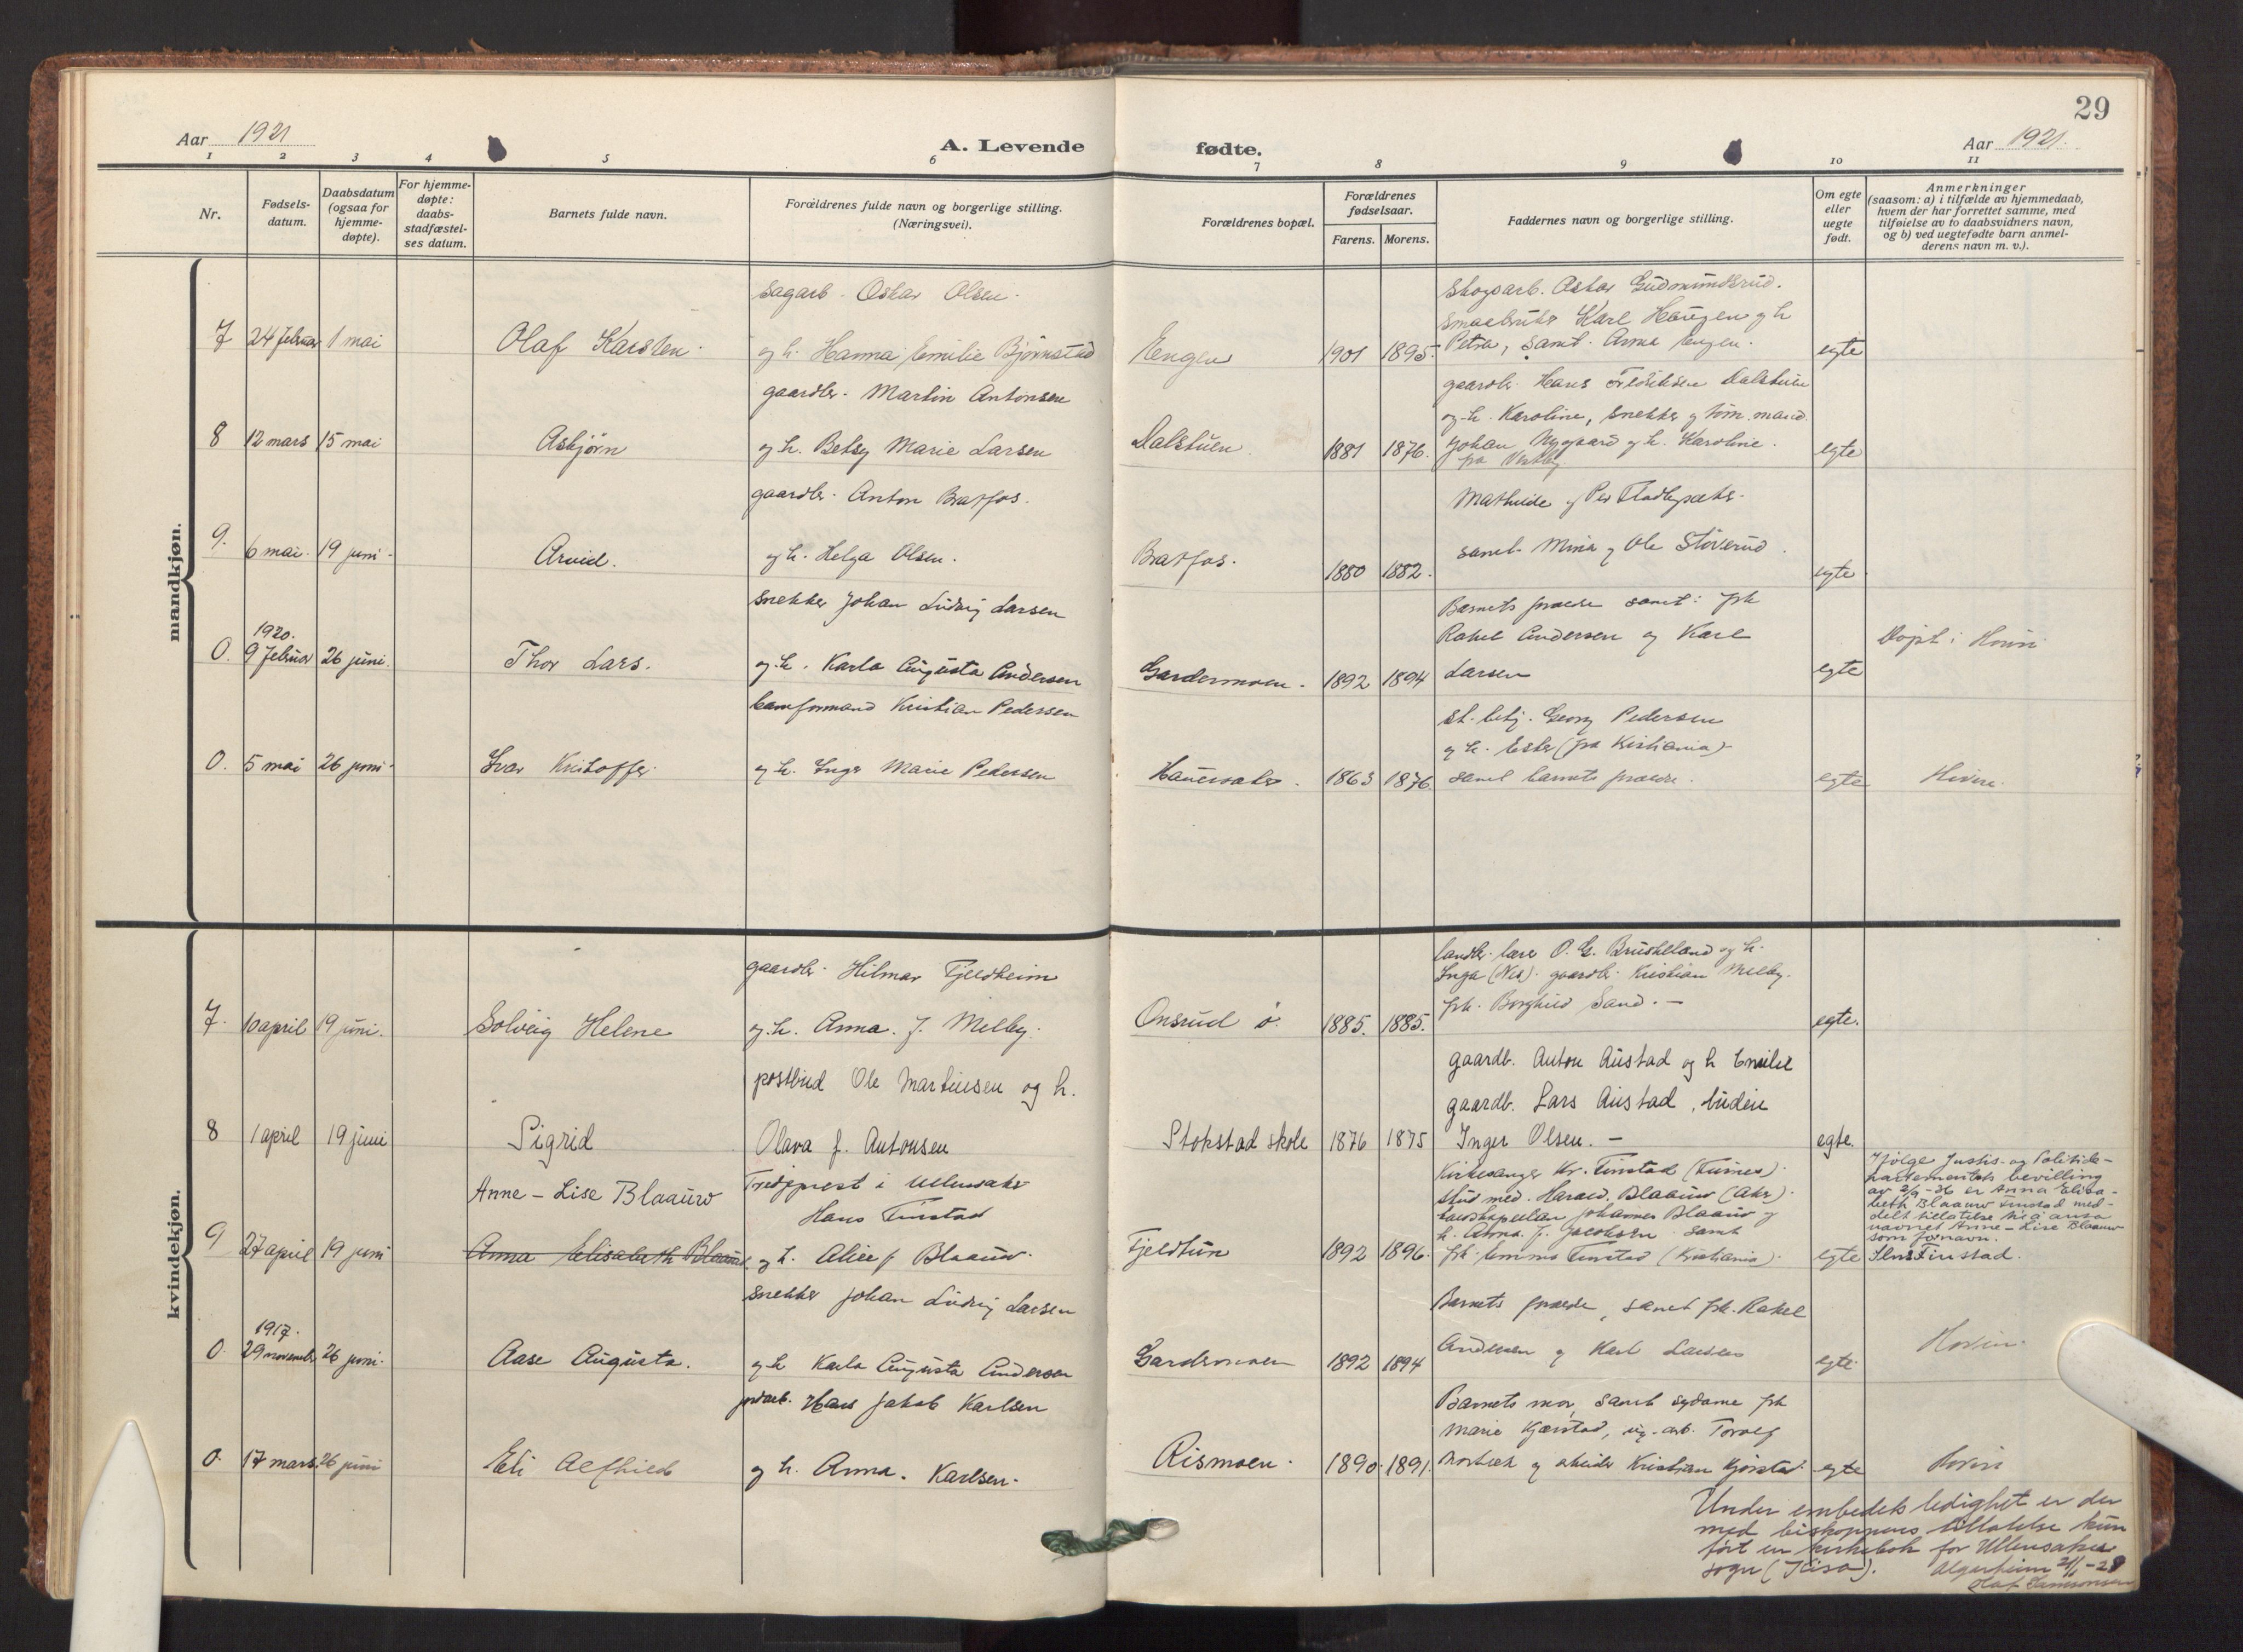 29
Aar 1921
A. Levende
fødte.
Aar 1921.
1 2 3 4 5 6 7 8 9 10 11
Nr.
Fødsels-
datum.
Daabsdatum
(ogsaa for
hjemme-
døpte).
For hjemme-
døpte:
daabs-
stadfæstel-
ses datum.
Barnets fulde navn.
Forældrenes fulde navn og borgerlige stilling.
(Næringsvei).
Forældrenes bopæl.
Forældrenes
fødselsaar.
Farens. Morens.
Faddernes navn og borgerlige stilling.
Om egte
eller
uegte
født.
Anmerkninger
(saasom: a) i tilfælde av hjemmedaab,
hvem der har forrettet samme, med
tilføielse av to daabsvidners navn,
og b) ved uegtefødte barn anmel-
derens navn m. v.).
mandkjøn.
sagarb. Oskar Olsen.
7 24 februar 1 mai Olaf Karsten. og h. Hanna Emilie Bjørnstad
Engen 1901 1895.
skogsarb. Gudmundsrud.
Karl Haugen og h
Petra, samt. Anna Engen.
egte
gaardbr. Martin Antonsen
8 12 mars 15 mai Asbjørn og h. Betsy Marie Larsen
Dalstuen 1881 1876.
gaardbr. Hans Fredriksen Dalstuen
og h. Karoline, snekker og tøm. mand
Johan Nygaard og h. Karoline.
fra Vestby
egte
gaardbr. Anton Bratfos.
9. 6 mai. 19 juni. Arvid. og h. Helga Olsen.
Bratfos. 1880 1882.
Mathilde og Per
samt Mina og Ole Stöverud.
egte
snekker Johan Ludvig Larsen
1920.
0. 9 februar 26 juni. Thor Lars. og h. Karla Augusta Andersen
Gardermoen. 1892 1894
Barnets forældre samt: frk
Rakel Andersen og Karl
Larsen
egte
Døpt i Hovin
banformand Kristian Pedersen
0. 5 mai 26 juni. Ivar Kristoffer. og h. Inga Marie Pedersen
Hauersæter. 1863 1876.
st. betj. Georg Pedersen
og h. Ester (fra Kristiania)
samt barnets forældre.
egte
Hovin.
kvindekjøn.
gaardbr. Hilmar Fjeldheim
7. 10 april 19 juni. Solveig Helene og h. Anna. f. Melby.
Onsrud ø. 1885. 1885.
landbr. lærer O. G. Bruskeland og h.
Inga (Nes). gaardbr. Kristian Melby.
frk. Borghild Sand. –
egte.
postbud Ole Martinsen og h.
8 1 april 19 juni Sigrid Olava f. Antonsen
Stokstad skole 1876 1875
gaardb. Anton Austad og h Emilie
gaardb. Lars Austad, budeie
Inger Olsen. –
egte.
Anne-Lise Blaauw
Tredjeprest i Ullensaker
Hans Finstad
9 27 april 19 juni Anna Elisabeth Blaauw og h. Alice f Blaauw.
Fjeldtun 1892 1896.
Kirkesanger Kr. Finstad (Furnes).
stud med. Harald Blaauw (Aker).
Johannes Blaauw og
h. Anna. f. Jacobsen samt
frk. Emma Finstad (Kristiania).
egte
Ifølge Justis- og Politide-
partementets bevilling
av 2/9-26 er Anna Elisa-
beth Blaauw Finstad med-
delt tillatelse til å anta
navnet Anne-Lise Blaauw
som fornavn.
Jens Finstad.
snekker Johan Ludvig Larsen
1917.
0. 29 november 26 juni. Aase Augusta. og h Karla Augusta Andersen
Gardermoen 1892 1894
Barnets forælde, samt frk. Rakel
Andersen og Karl Larsen
egte.
Hovin.
jordarb. Hans Jakob Karlsen
0. 17 mars. 26 juni Eli Alfhild og h. Anna. Karlsen.
Rismoen. 1890. 1891.
Barnets mor, samt sydame frk
Marie Kjærstad, arb. Toralf
og arbeider Kristian Kjørstad
egte
Hovin
Under embedets ledighet er der
med biskoppens tillatelse kun
ført en kirkebok for Ullensaker
sogn (Kisa). Algarheim 21/1-28
Olaf Samsonsen